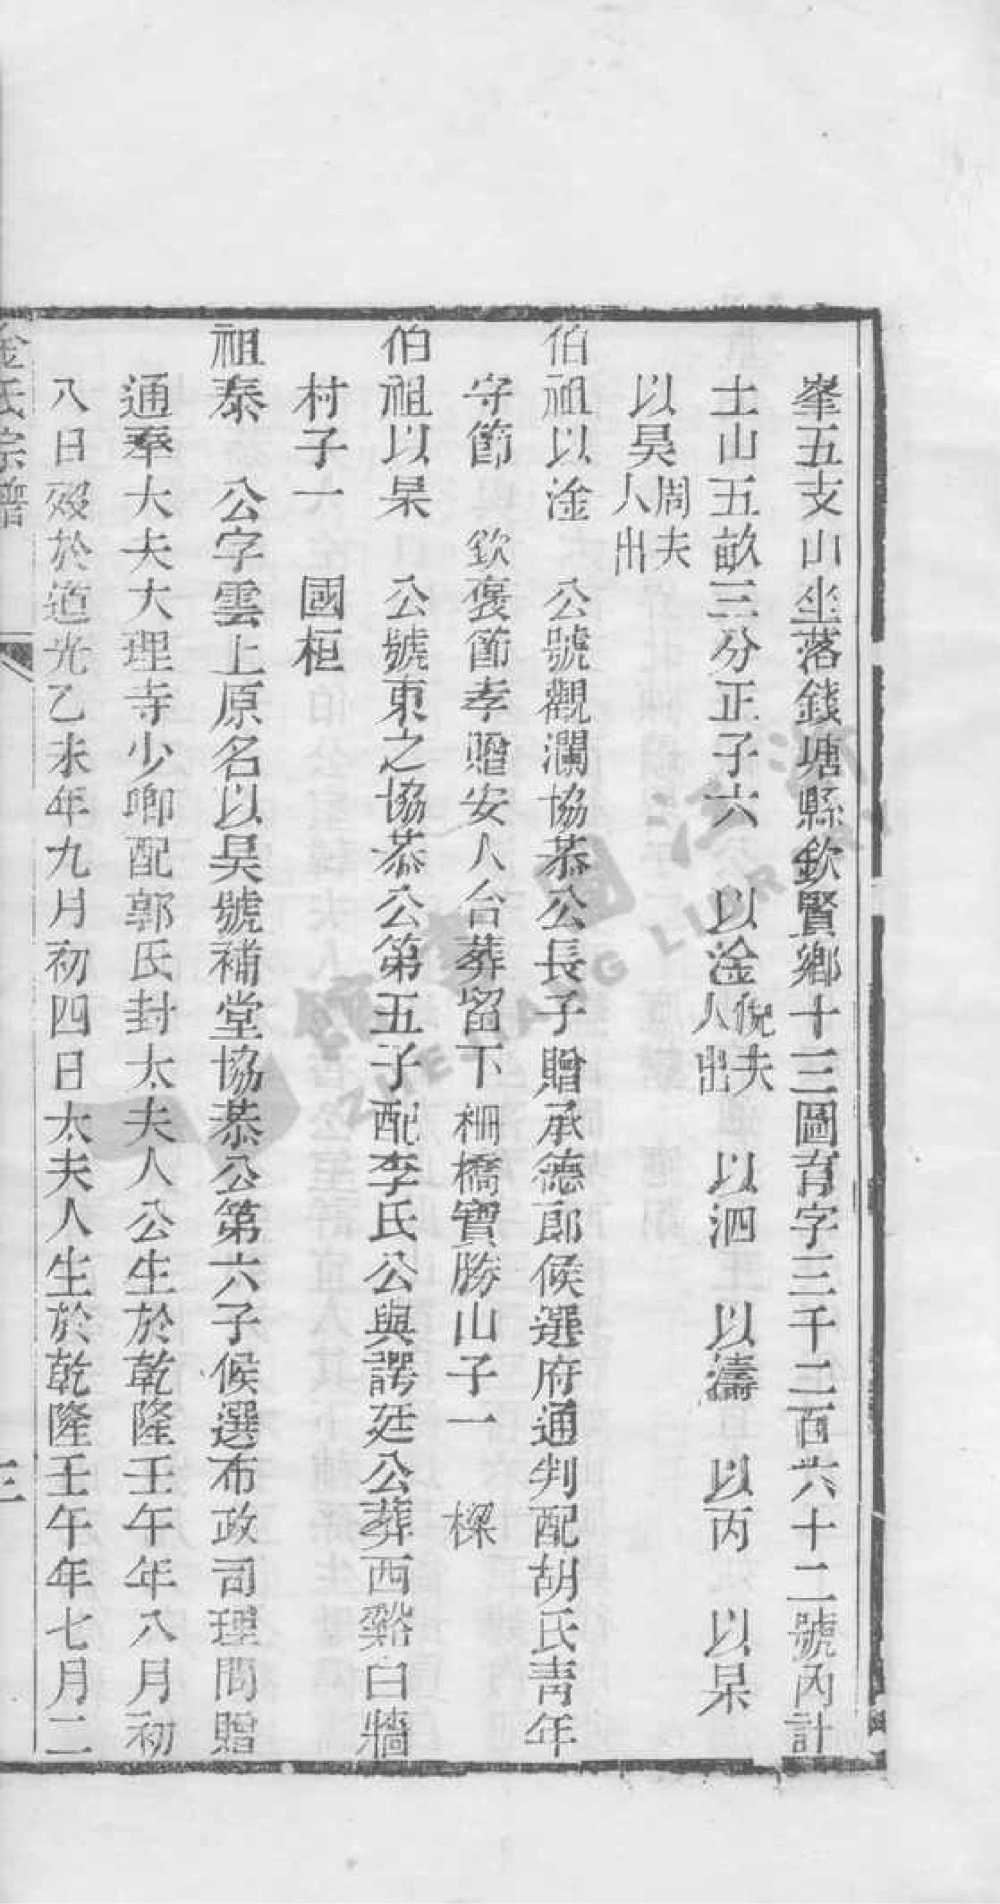 峯五支山坐落錢塘縣欽賢鄉十三圖育字三千二百六十二號內計
土山五畝三分正子六 以淦倪夫人出 以泗 以濤 以丙 以杲
以昊周夫人出
伯祖以淦 公號觀瀾協恭公長子贈承德郎候選府通判配胡氏青年
守節 欽褒節孝贈安人合葬留下柵橋寶勝山子一 樑
伯祖以杲 公號東之協恭公第五子配李氏公與諤廷公葬西谿白牆
村子一 國桓
祖泰 公字雲上原名以昊號補堂協恭公第六子候選布政司理問贈
通奉大夫大理寺少卿配郭氏封太夫人公生於乾隆壬午年八月初
八日歿於道光乙未年九月初四日太夫人生於乾隆壬午年七月二
金氏宗譜
三
浙江圖書館
ZHEJIANG LIBRARY